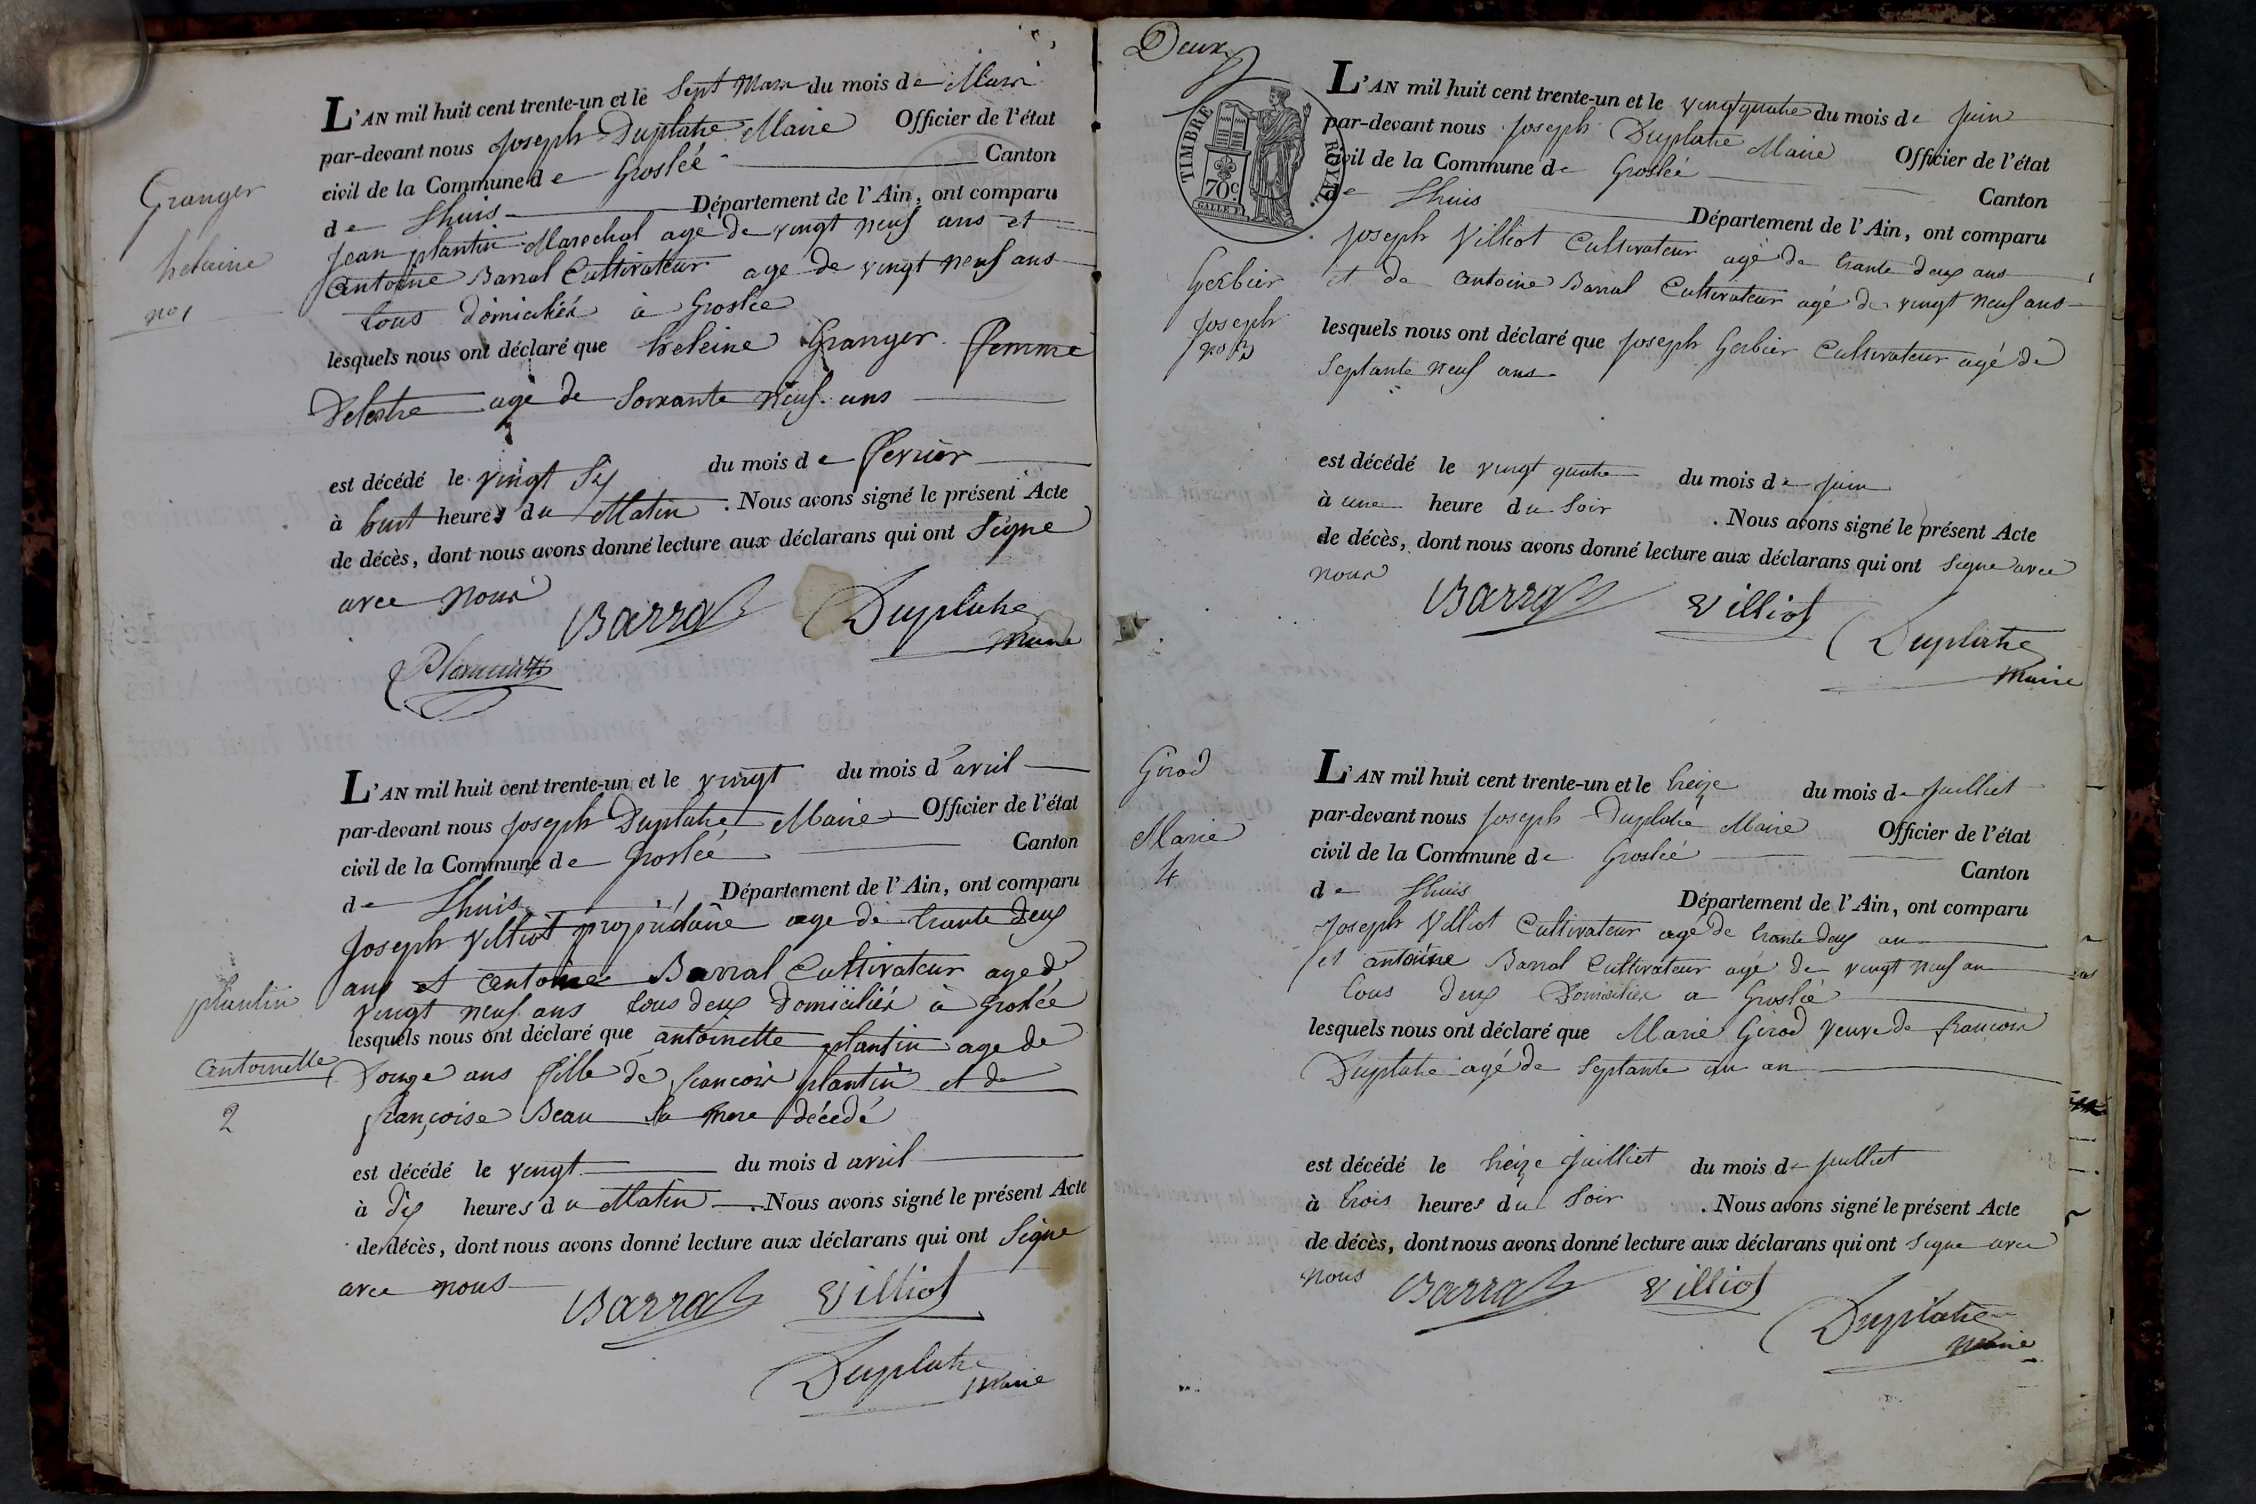 Granger
heleine
no 1
L'AN mil huit cent trente-un et le Sept Mars du mois de Mars
par-devant nous Joseph Duplatre Maire Officier de l'état
civil de la Commune de Groslée Canton
de Lhuis Département de l'Ain, ont comparu
Jean plantin Marechal agé de vingt neuf ans et
Antoine Barral Cultivateur age de vingt neuf ans
tous domiciliés à Groslée
lesquels nous ont déclaré que heleine Granger femme
Delestre agé de Soixante Neuf ans
est décédé le vingt Six du mois de fevrier
à huit heures du Matin. Nous avons signé le présent Acte
de décès, dont nous avons donné lecture aux déclarans qui ont Signe
avec nous
Barral Duplatre
Maire
plantin
Antoinette
2
L'AN mil huit cent trente-un et le vingt du mois d'avril
par-devant nous Joseph Duplatre Maire Officier de l'état
civil de la Commune de Groslée Canton
de Lhuis Département de l'Ain, ont comparu
Joseph Villiot propriétaire age de trante deux
ans et antoine Barral Cultivateur age d
vingt neuf ans tous deux Domiciliés à Groslée
lesquels nous ont déclaré que antoinette plantin age de
Douze ans fille de francois plantin et de
françoise Beau sa mere décedé
est décédé le vingt du mois d avril
à dix heures du Matin. Nous avons signé le présent Acte
de décès, dont nous avons donné lecture aux déclarans qui ont Signe
avec nous
Barral Villiot
Duplatre
Maire
Deux
TIMBRE ROYAL
70c
Gerbier
Joseph
no 3
L'AN mil huit cent trente-un et le vingt quatre du mois de Juin
par-devant nous Joseph Duplatre Maire Officier de l'état
civil de la Commune de Groslée Canton
de Lhuis Département de l'Ain, ont comparu
Joseph Villiot Cultivateur agé de trante deux ans
et de antoine Barral Cultivateur agé de vingt neuf ans
lesquels nous ont déclaré que Joseph Gerbier Cultivateur agé de
Septante neuf ans
est décédé le vingt quatre du mois de Juin
à une heure du Soir. Nous avons signé le présent Acte
de décès, dont nous avons donné lecture aux déclarans qui ont Signe avec
nous
Barral Villiot
Duplatre
Maire
Girod
Marie
4
L'AN mil huit cent trente-un et le treize du mois de Juilliet
par-devant nous Joseph Duplatre Maire Officier de l'état
civil de la Commune de Groslée Canton
de Lhuis Département de l'Ain, ont comparu
Joseph Villiot Cultivateur age de trante deux an
et antoine Barral Cultivateur agé de vingt neuf an
tous deux Domiciliés a Groslée
lesquels nous ont déclaré que Marie Girod Veuve de francois
Duplatre agé de Septante un an
est décédé le treize Juilliet du mois de Juilliet
à trois heures du Soir. Nous avons signé le présent Acte
de décès, dont nous avons donné lecture aux déclarans qui ont Signe avec
nous
Barral Villiot
Duplatre
Maire